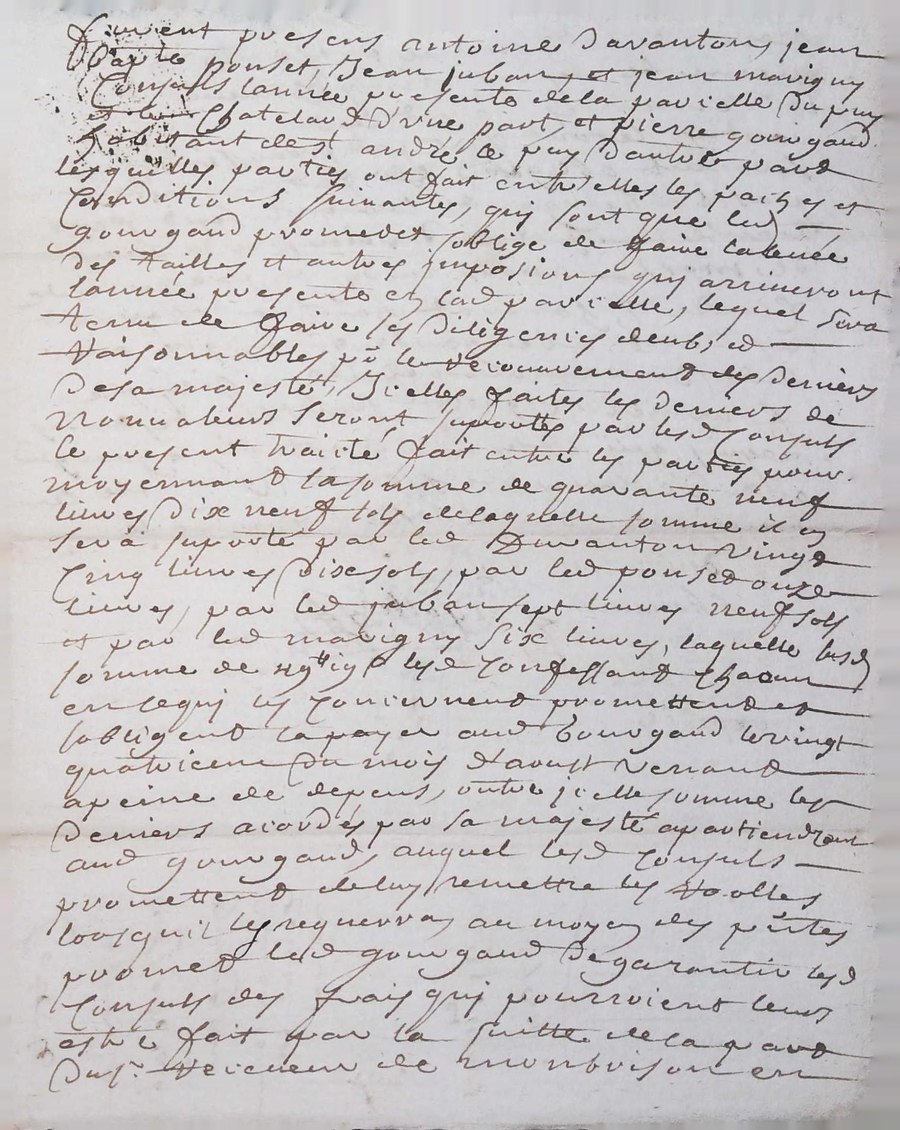 furent presens antoine Davanton, jean
ponset, Jean juban, et jean marigny
Consuls lannée presente de la parcelle du puy
et Chatelard d'une part, et pierre gourgaud
habitant de st andré le puy Dautre part
lesquelles parties ont fait entre elles les paches et
Conditions suivantes, qui sont que led
gourgaud promet et soblige de faire la levée
des tailles et autres imposions qui arriveront
lannée presente en lad parcelle, lequel sera
tenu de faire les diligences deubs et
Raisonnables pr le recouvrement des deniers
de sa majesté, Icelles faites les deniers de
seront suportés par lesd Consuls
le present traité fait entre les parties pour
moyennant la somme de quarante neuf
livres Dix neuf sols de laquelle somme il en
sera suporté par led Davanton vingt
Cinq livres Dix sols, par led ponset onze
livres, par led juban sept livres neuf sols
et par led marigny six livres, laquelle susd
somme de 49lt 19s lesd Confessant Chacun
en ce qui les Concernent promettent et
sobligent la payer aud Gourgaud le vingt
quatrieme du mois d'aoust venant
apeine de depens, outre jcelle somme les
deniers acordés par sa majesté apartiendront
aud gourgaud, auquel lesd Consuls
promettent de luy remettre les Roolles
lorsquil les requerra, au moyen des pntes
promet led gourgaud de garantir lesd
Consuls des frais qui pourroient leurs
estre fait par la suitte de la part
Du sr Receveur de monbrison en